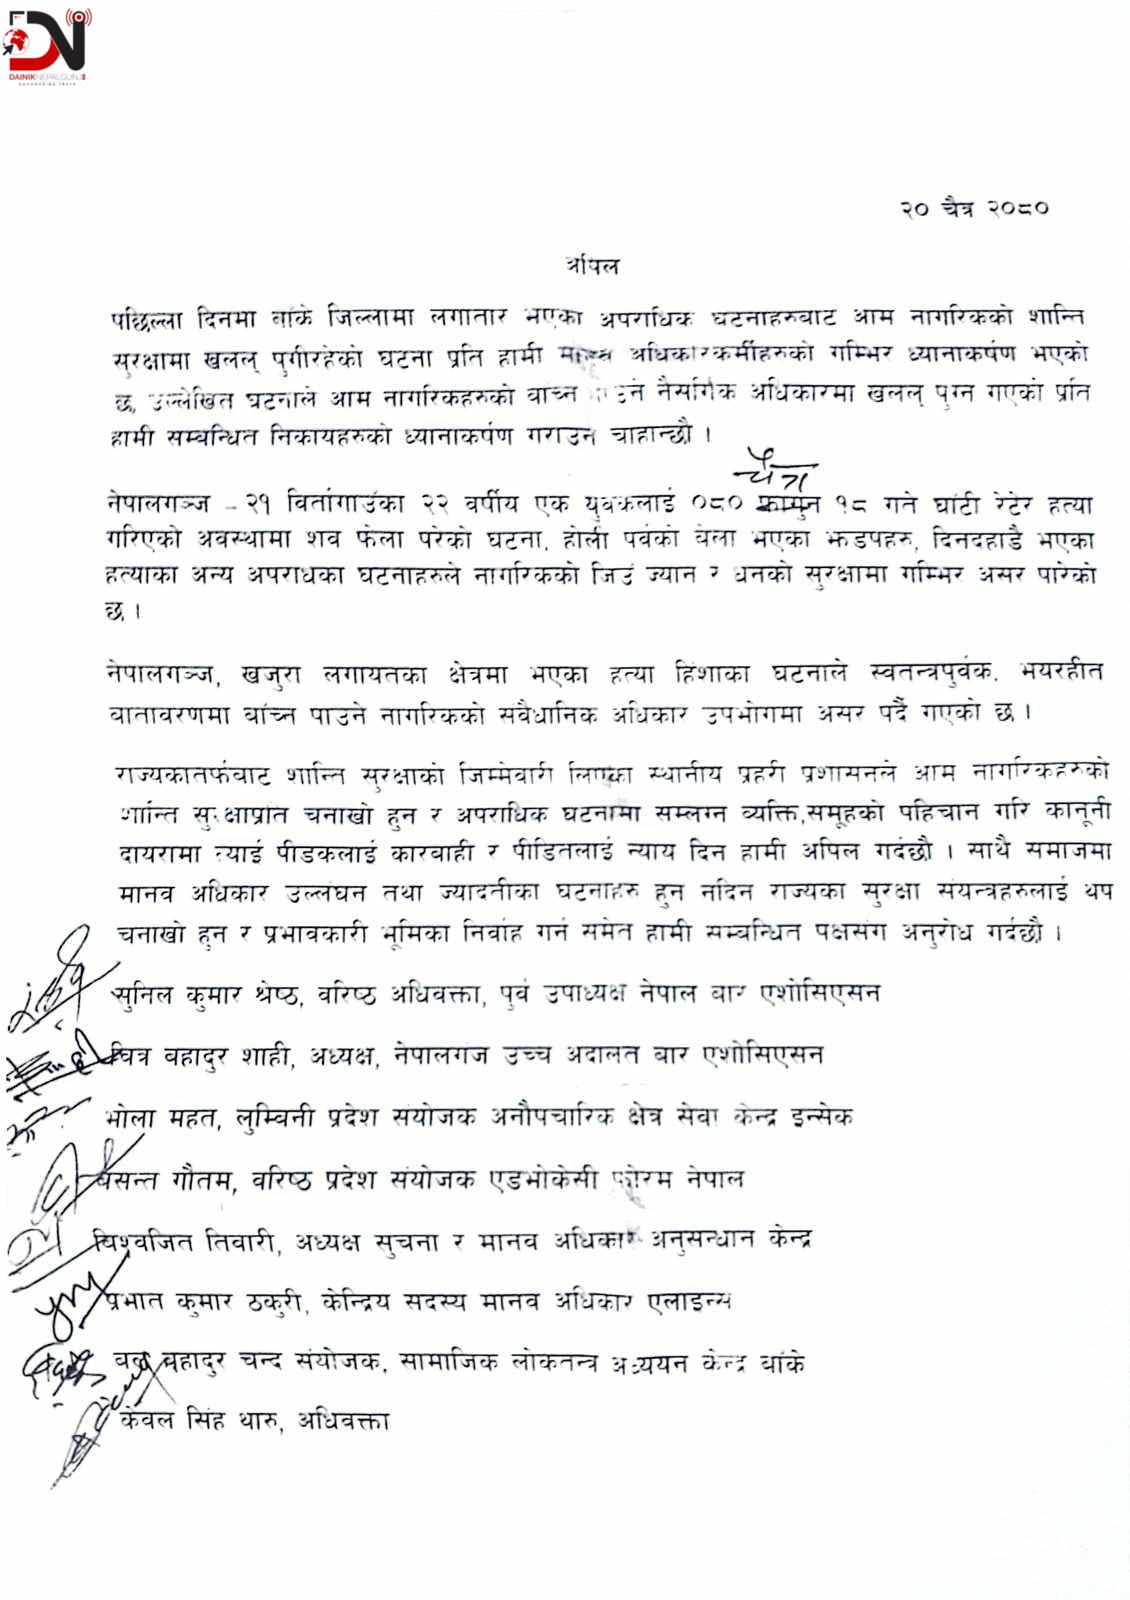 DN
DAINIKNEPALGUNJ
EMPOWERING TRUTH
२० चैत्र २०८०
अपिल
पछिल्ला दिनमा बांके जिल्लामा लगातार भएका अपराधिक घटनाहरुबाट आम नागरिकको शान्ति
सुरक्षामा खलल् पुगीरहेको घटना प्रति हामी मानव अधिकारकर्मीहरुको गम्भिर ध्यानाकर्षण भएको
छ, उल्लेखित घटनाले आम नागरिकहरुको बाच्न पाउने नैसर्गिक अधिकारमा खलल् पुग्न गएको प्रति
हामी सम्बन्धित निकायहरुको ध्यानाकर्षण गराउन चाहान्छौ ।
चैत्र
नेपालगञ्ज - २१ वितांगाउंका २२ वर्षीय एक युवकलाई ०८० फाल्गुन १८ गते घांटी रेटेर हत्या
गरिएको अवस्थामा शव फेला परेको घटना, होली पर्वको बेला भएका झडपहरु, दिनदहाडै भएका
हत्याका अन्य अपराधका घटनाहरुले नागरिकको जिउ ज्यान र धनको सुरक्षामा गम्भिर असर पारेको
छ ।
नेपालगञ्ज, खजुरा लगायतका क्षेत्रमा भएका हत्या हिंशाका घटनाले स्वतन्त्रपुर्वक, भयरहीत
वातावरणमा बांच्न पाउने नागरिकको संवैधानिक अधिकार उपभोगमा असर पर्दै गएको छ ।
राज्यकातर्फबाट शान्ति सुरक्षाको जिम्मेवारी लिएका स्थानीय प्रहरी प्रशासनले आम नागरिकहरुको
शान्ति सुरक्षाप्रति चनाखो हुन र अपराधिक घटनामा सम्लग्न व्यक्ति,समूहको पहिचान गरि कानूनी
दायरामा ल्याई पीडकलाई कारवाही र पीडितलाई न्याय दिन हामी अपिल गर्दछौ । साथै समाजमा
मानव अधिकार उल्लंघन तथा ज्यादतीका घटनाहरु हुन नदिन राज्यका सुरक्षा संयन्त्रहरुलाई थप
चनाखो हुन र प्रभावकारी भूमिका निर्वाह गर्न समेत हामी सम्बन्धित पक्षसंग अनुरोध गर्दछौ ।
सुनिल कुमार श्रेष्ठ, वरिष्ठ अधिवक्ता, पुर्व उपाध्यक्ष नेपाल बार एशोसिएसन
चित्र बहादुर शाही, अध्यक्ष, नेपालगंज उच्च अदालत बार एशोसिएसन
भोला महत, लुम्बिनी प्रदेश संयोजक अनौपचारिक क्षेत्र सेवा केन्द्र इन्सेक
बसन्त गौतम, वरिष्ठ प्रदेश संयोजक एडभोकेसी फोरम नेपाल
विश्वजित तिवारी, अध्यक्ष सुचना र मानव अधिकार अनुसन्धान केन्द्र
प्रभात कुमार ठकुरी, केन्द्रिय सदस्य मानव अधिकार एलाइन्स
बल बहादुर चन्द संयोजक, सामाजिक लोकतन्त्र अध्ययन केन्द्र बांके
केवल सिंह थारु, अधिवक्ता